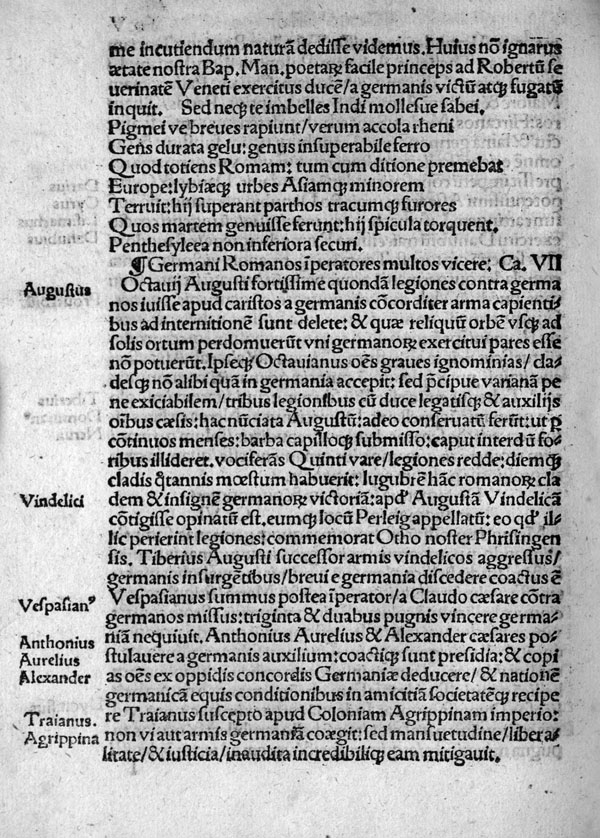 me incutiendum naturã dedisse videmus. Huius nõ ignarus
ætate nostra Bap. Man. poetaꝝ facile princeps ad Robertũ se
uerinatẽ Veneti exercitus ducẽ/a germanis victũ atqꝫ fugatũ
inquit. Sed neqꝫ te imbelles Indi mollesue sabei.
Pigmei ve breues rapiunt/verum accola rheni
Gens durata gelu: genus insuperabile ferro
Quod totiens Romam: tum cum ditione premebat
Europe: lybiæqꝫ urbes Asiamqꝫ minorem
Terruit: hij superant parthos tracumqꝫ furores
Quos martem genuisse ferunt: hij spicula torquent.
Penthesyleea non inferiora securi.
¶ Germani Romanos ĩperatores multos vicere: Ca. VII
Augustus
Octauij Augusti fortissime quondã legiones contra germa
nos iuisse apud caristos a germanis cõcorditer arma capienti-
bus ad internitionẽ sunt delete: & quæ reliquũ orbẽ vsqꝫ ad
solis ortum perdomuerũt vni germanoꝝ exercitui pares esse
nõ potuerũt. Ipseqꝫ Octauianus oẽs graues ignominias/cla-
desqꝫ nõ alibi quã in germania accepit: sed p̃cipue varianã pe
ne exiciabilem/tribus legionibus cũ duce legatisqꝫ & auxilijs
oĩbus cæsis: hac nũciata Augustũ: adeo conseruatũ ferũt: ut ꝑ
cõtinuos menses: barba capilloqꝫ submisso: caput interdũ fo-
ribus illideret. vociferãs Quinti vare/legiones redde: diemqꝫ
cladis q̃tannis mœstum habuerit: lugubrẽ hãc romanoꝝ cla
Vindelici
dem & insignẽ germanoꝝ victoriã: apd' Augustã Vindelicã
cõtigisse opinatũ est. eumqꝫ locũ Perleig appellatũ: eo qd' il-
lic perierint legiones: commemorat Otho noster Phrisingen
sis. Tiberius Augusti successor armis vindelicos aggressus/
germanis insurgẽtibus/breui e germania discedere coactus ẽ
Vespasianꝰ
Vespasianus summus postea ĩperator/a Claudo cæsare cõtra
germanos missus: triginta & duabus pugnis vincere germa-
Anthonius
niã nequiuit. Anthonius Aurelius & Alexander cæsares po-
Aurelius
stulauere a germanis auxilium: coactiqꝫ sunt presidia: & copi
Alexander
as oẽs ex oppidis concordis Germaniæ deducere/& nationẽ
germanicã equis conditionibus in amicitiã societatẽqꝫ recipe
Traianus.
re Traianus suscepto apud Coloniam Agrippinam imperio:
Agrippina
non vi aut armis germanĩã coægit: sed mansuetudine/libera-
litate/& iusticia/inaudita incredibiliqꝫ eam mitigauit.